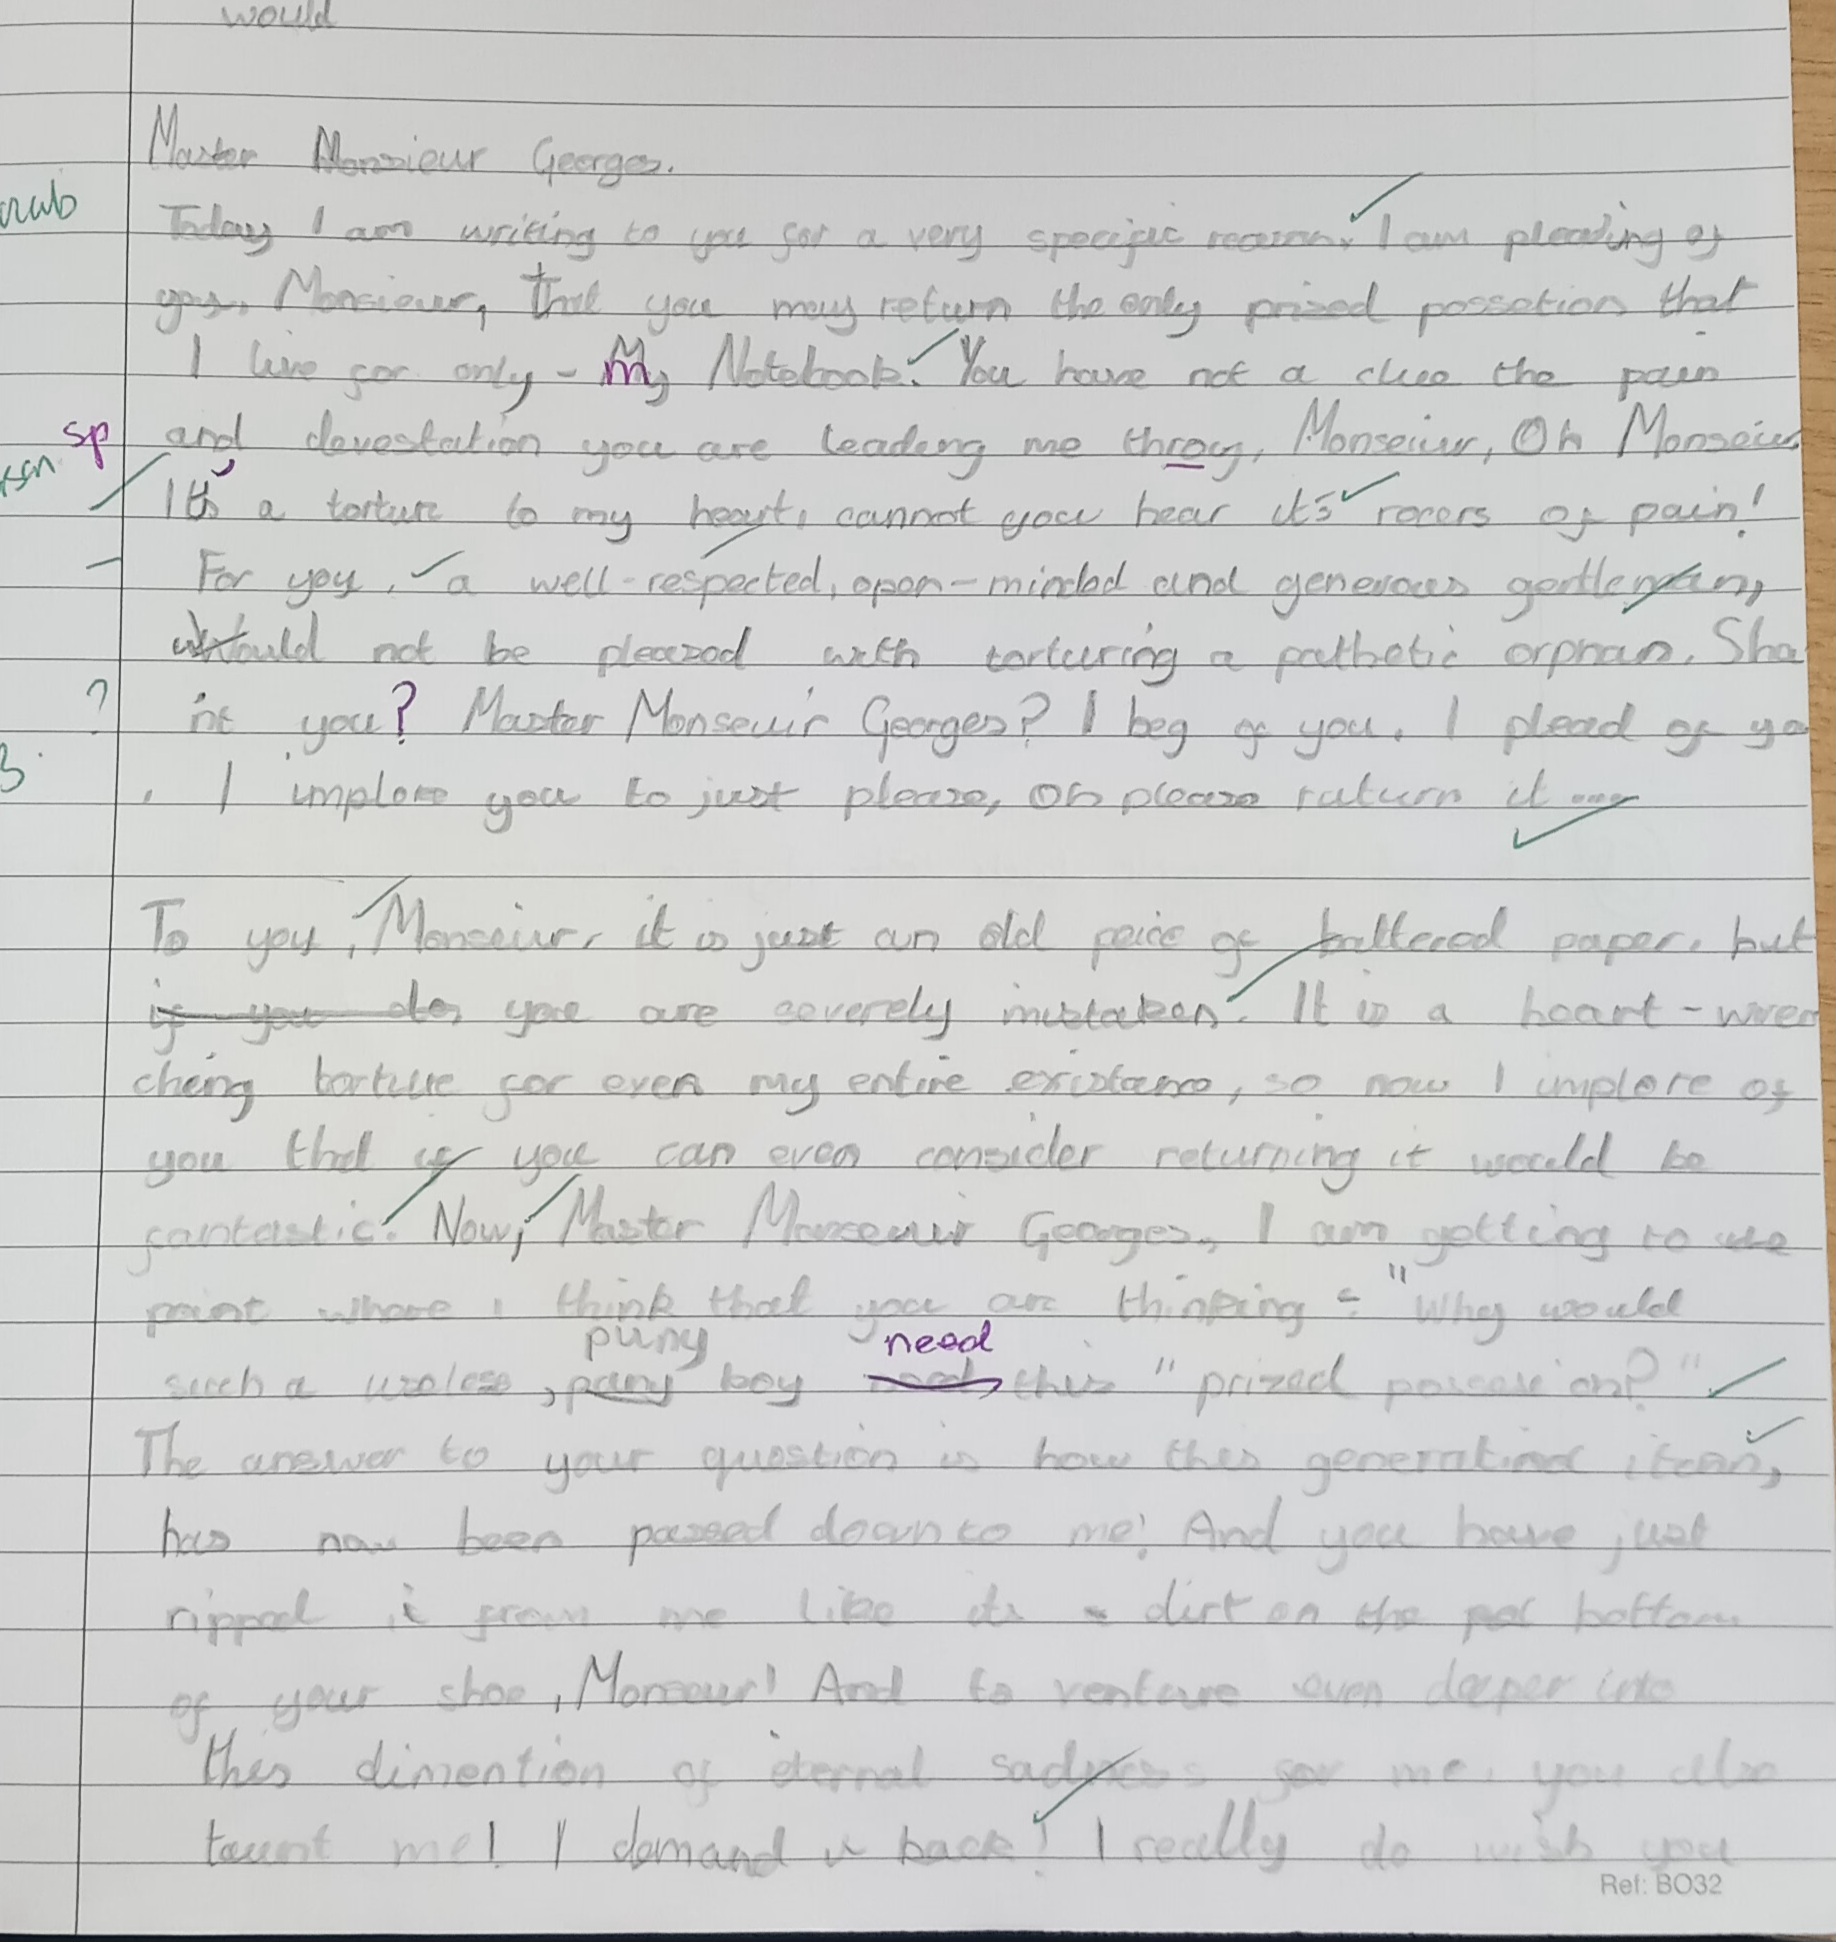 would
Master Monsieur Georges.
Today I am writing to you for a very specific reason. I am pleading of
you, Monsieur, that you may return the only prized possetion that
I live for only - My Notebook. You have not a clue the pain
sp and devestation you are leading me throy, Monseiur, Oh Monseiur
It's a torture to my heart, cannot you hear it's roars of pain!
For you, a well-respected, open-minded and generous gentleman,
would not be pleased with torturing a pathetic orphan. Sha
? int you? Master Monseuir Georges? I beg of you. I plead of yo
. I implore you to just please, oh please return it ....
To you, Monseiur, it is just an old peice of battered paper, but
if you do, you are severely mistaken. It is a heart-wren
ching torture for even my entire existance, so now I implore of
you that if you can even consider returning it would be
fantastic. Now, Master Monseuir Georges, I am getting to the
point where i think that you are thinking - "Why would
puny need
such a useless, puny boy this "prized possession?"
The answer to your question is how this item,
has now been passed down to me! And you have just
ripped it from me like its a dirt on the bottom
of your shoe, Monseur! And to venture even deeper into
this dimention of eternal sadness for me, you also
taunt me! I demand it back! I really do wish you
Ref: BO32